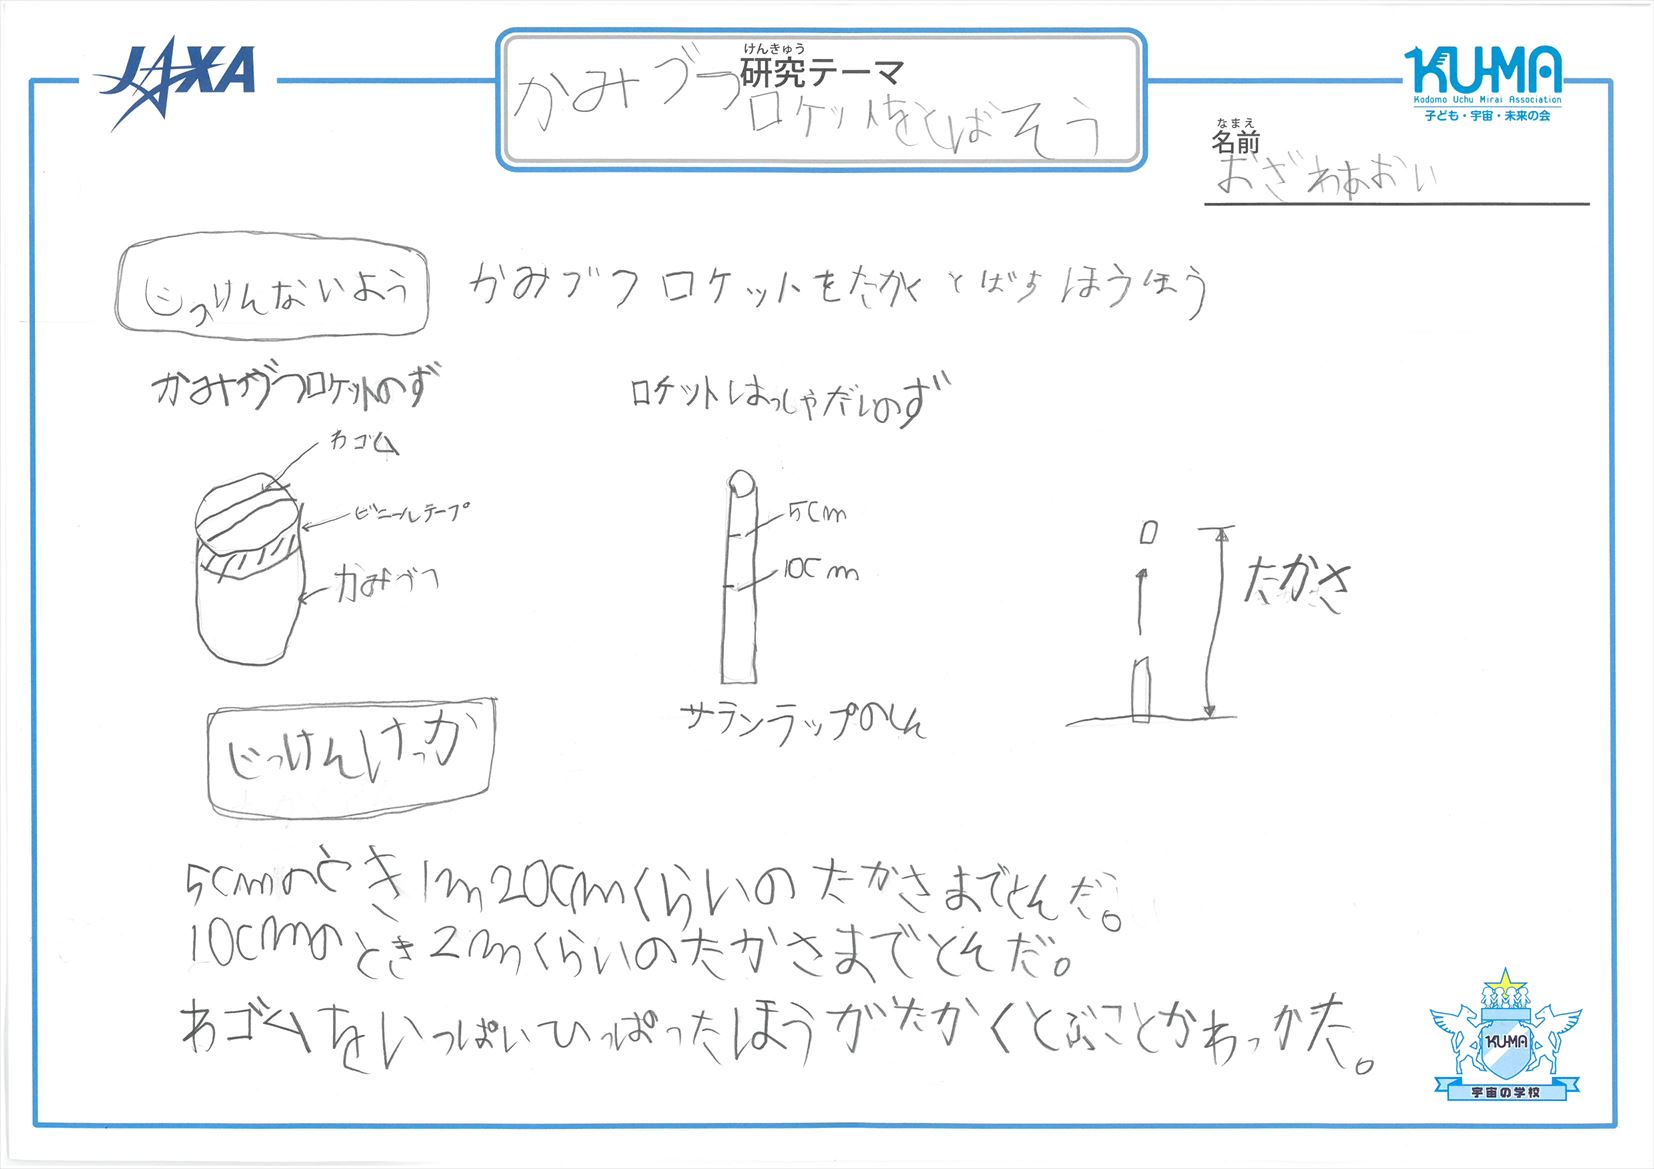 JAXA
けんきゅう
研究テーマ
かみづつ
ロケットをとばそう
KU-MA
Kodomo Uchu Mirai Association
子ども・宇宙・未来の会
なまえ
名前
おざわあおい
じっけんないよう
かみづつ ロケットをたかく とばす ほうほう
かみづつロケットのず
わゴム
ビニールテープ
かみづつ
ロケットはっしゃだいのず
5cm
10cm
サランラップのしん
たかさ
じっけんけっか
5cmのとき1m20cmくらいの たかさまでとんだ。
10cmのとき2mくらいのたかさまでとんだ。
わゴムをいっぱいひっぱったほうがたかくとぶことかわっかた。
KU-MA
宇宙の学校